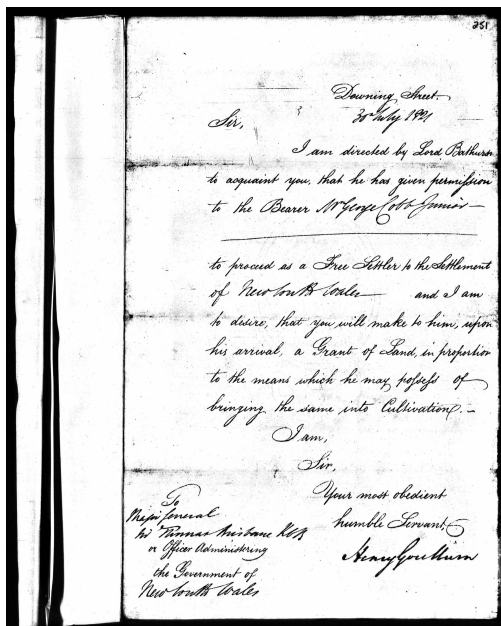 251
Downing Street.
30 July 1821
Sir,
I am directed by Lord Bathurst
to acquaint you, that he has given permission
to the Bearer Mr George Cobb Junior
to proceed as a Free Settler to the Settlement
of New South Wales and I am
to desire, that you will make to him, upon
his arrival, a Grant of Land, in proportion
to the means which he may possess of
bringing the same into Cultivation. -
I am,
Sir,
Your most obedient
humble Servant,
Henry Goulburn
To
Major General
Sir Thomas Brisbane KCB
or Officer Administering
the Government of
New South Wales